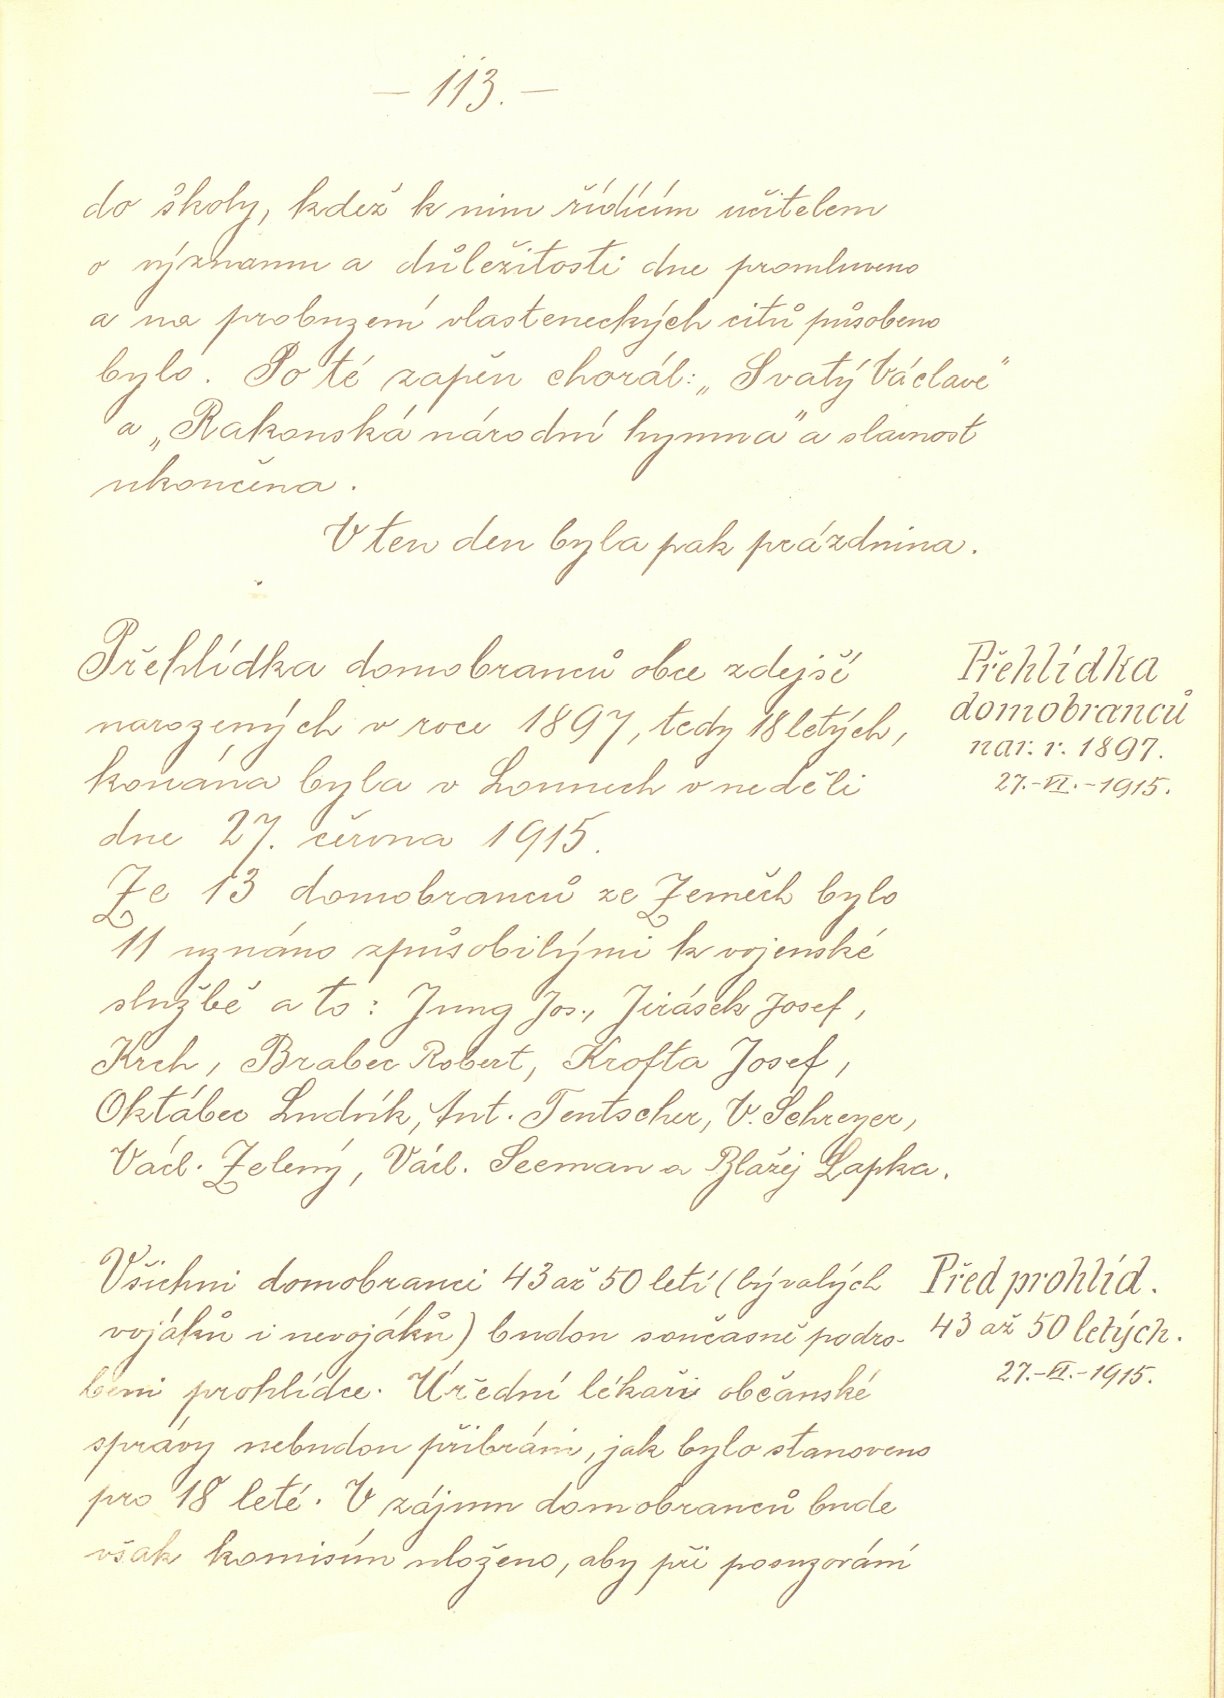 — 113. —
do školy, kdež k nim řídícím učitelem
o významu a důležitosti dne promluveno
a na probuzení vlasteneckých citů působeno
bylo. Po té zapěn chorál: „Svatý Václave"
a „Rakouská národní hymna" a slavnost
ukončena.
V ten den byla pak prázdnina.
Přehlídka domobranců obce zdejší
narozených v roce 1897, tedy 18letých,
konána byla v Lounech v neděli
dne 27. června 1915.
Přehlídka
domobranců
nar. r. 1897.
27.-VI.-1915.
Ze 13 domobranců ze Zeměch bylo
11 uznáno způsobilými k vojenské
službě a to: Jung Jos., Jirásek Josef,
Krch, Brabec Robert, Krofta Josef,
Oktábec Ludvík, Ant. Tentscher, V. Schreyer,
Václ. Zelený, Václ. Seeman a Blažej Lapka.
Všichni domobranci 43 až 50 letí (bývalých
vojáků i nevojáků) budou současně podro-
beni prohlídce. Úřední lékaři občanské
správy nebudou přibráni, jak bylo stanoveno
pro 18 leté. V zájmu domobranců bude
však komisím uloženo, aby při posuzování
Před prohlíd.
43 až 50 letých.
27.-VI.-1915.